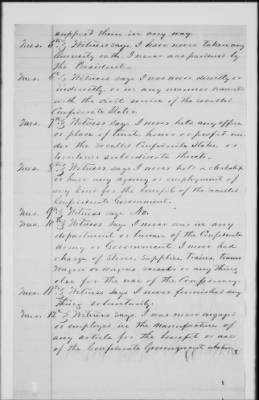 support them in any way.
Ans. 5th Witness says I have never taken any
amnesty oath. I never was pardoned by
the President.
Ans. 6th Witness says I was never directly or
indirectly or in any manner connected
with the civil service of the so called
Confederate States.
Ans. 7th Witness says I never held any office
or place of trust honor or profit under
the so called Confederate States, or
subordinate thereto.
Ans. 8th Witness says I never held a clerkship
or have any agency or employment of
any kind for the benefit of the so called
Confederate Government.
Ans. 9th Witness says No.
Ans. 10th Witness says I never was in any
department or bureau of the Confederate
Army or Government. I never had
charge of Stores, Supplies, Trains, teams
Wagon or wagons vessels or any thing
else for the use of the Confederacy.
Ans. 11th Witness says I never furnished any
thing voluntarily.
Ans. 12th Witness says. I was never engaged
or employed in the manufacture of
any article for the benefit or use
of the Confederate Government